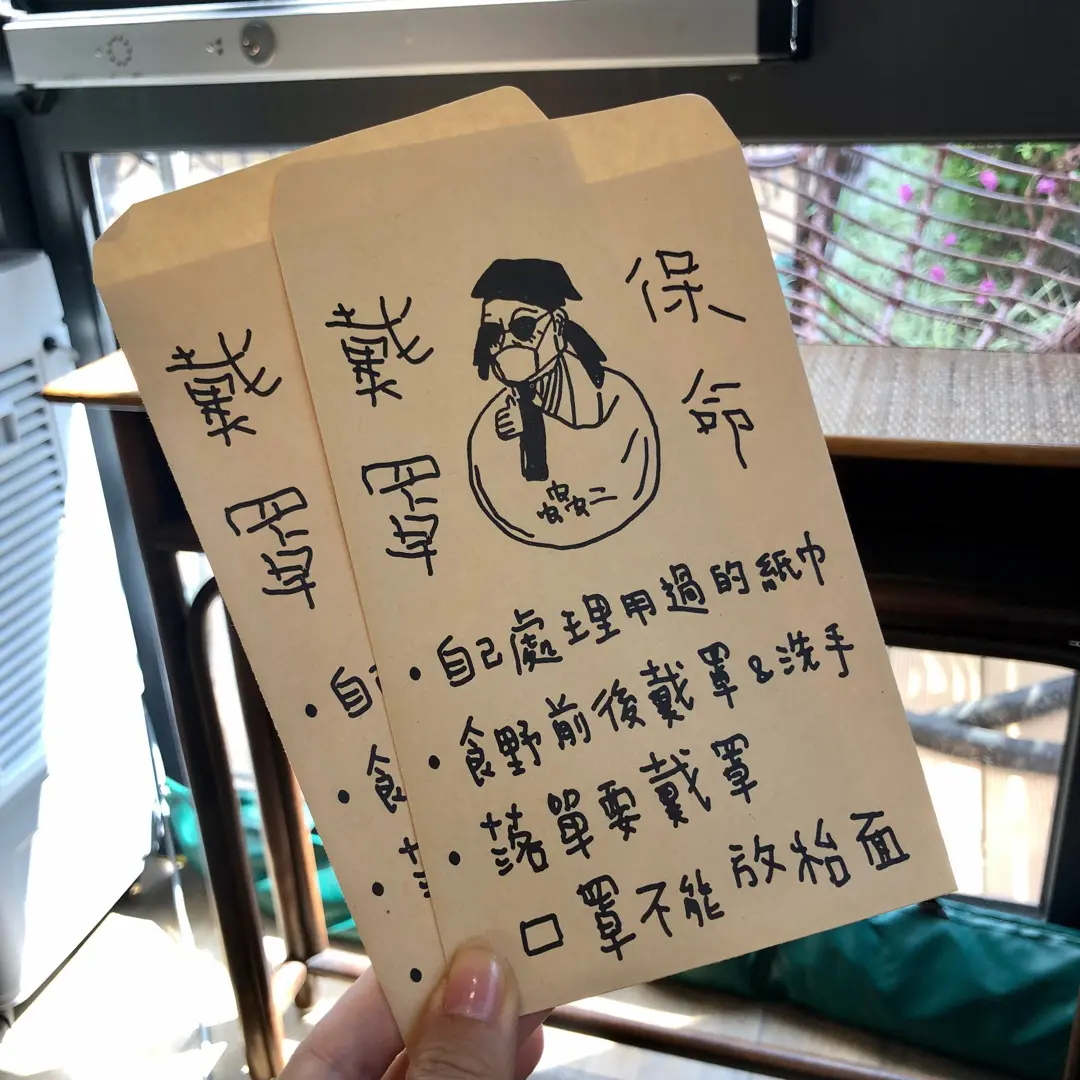 戴罩
保命
• 自己處理用過的紙巾
• 食野前後戴罩&洗手
• 落單要戴罩
口罩不能放枱面
戴罩
• 自
• 食